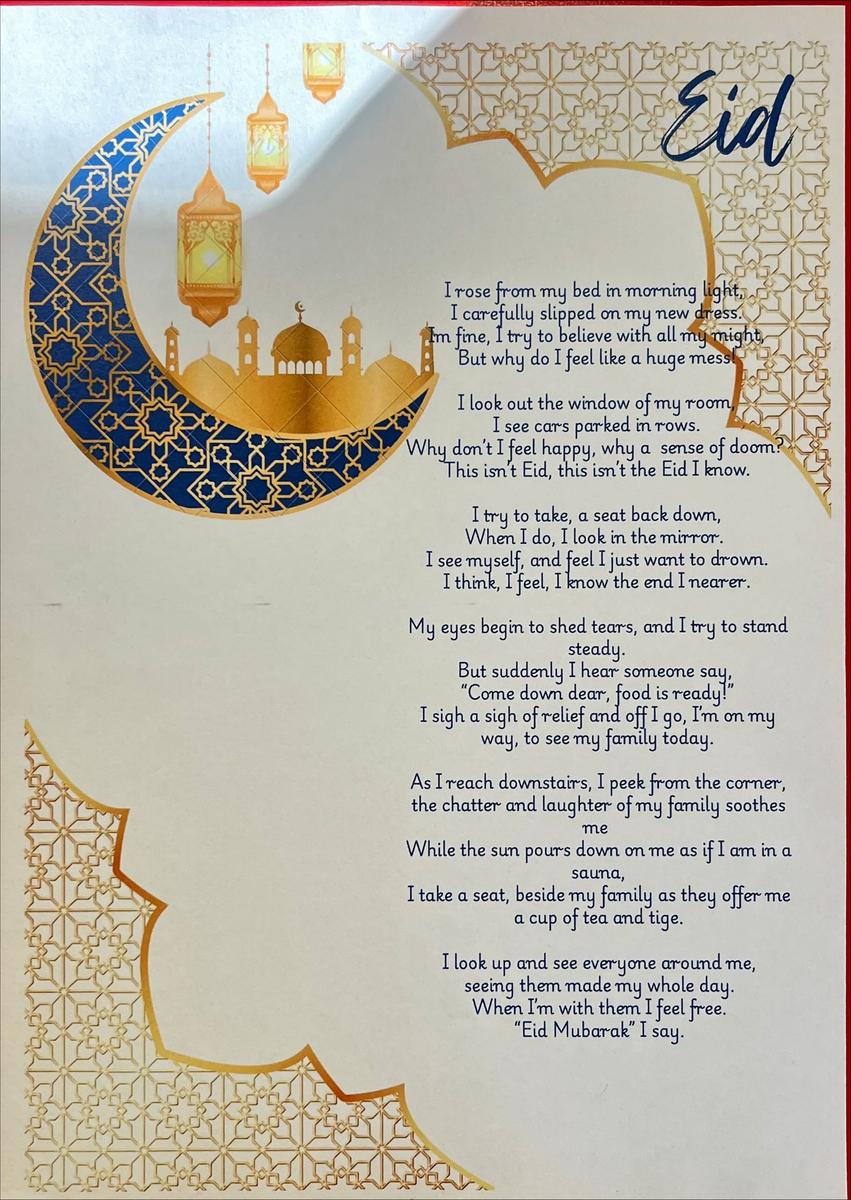 Eid
I rose from my bed in morning light,
I carefully slipped on my new dress.
Im fine, I try to believe with all my might,
But why do I feel like a huge mess!
I look out the window of my room,
I see cars parked in rows.
Why don't I feel happy, why a sense of doom?
This isn't Eid, this isn't the Eid I know.
I try to take, a seat back down,
When I do, I look in the mirror.
I see myself, and feel I just want to drown.
I think, I feel, I know the end I nearer.
My eyes begin to shed tears, and I try to stand
steady.
But suddenly I hear someone say,
“Come down dear, food is ready!”
I sigh a sigh of relief and off I go, I'm on my
way, to see my family today.
As I reach downstairs, I peek from the corner,
the chatter and laughter of my family soothes
me
While the sun pours down on me as if I am in a
sauna,
I take a seat, beside my family as they offer me
a cup of tea and tige.
I look up and see everyone around me,
seeing them made my whole day.
When I'm with them I feel free.
“Eid Mubarak” I say.